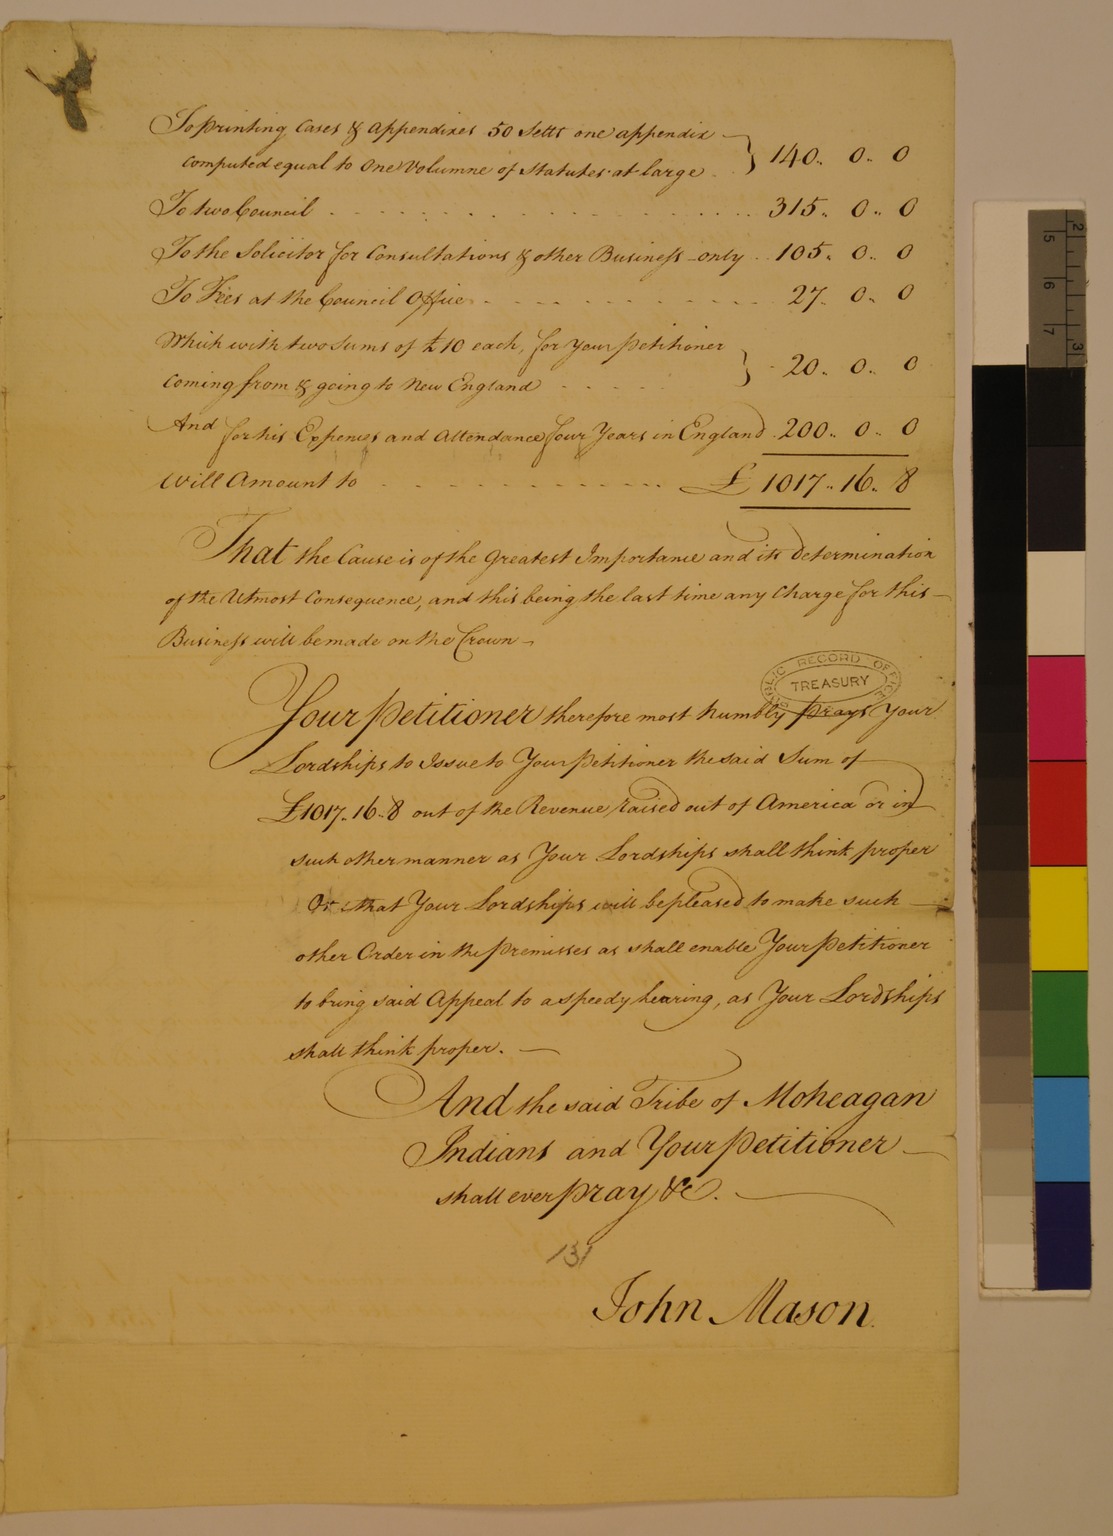 To printing Cases & Appendixes 50 Setts one appendix
computed equal to One Volumne of Statutes at large . . } 140.. 0.. 0
To two Council . . . . . . . . . . . . 315.. 0.. 0
To the Solicitor for Consultations & other Business only . . 105.. 0.. 0
To Fees at the Council Office . . . . . . . . 27.. 0.. 0
Which with two Sums of £10 each, for Your Petitioner
coming from & going to New England . . . . } 20.. 0.. 0
And for his Expences and Attendance four Years in England . 200.. 0.. 0
Will Amount to . . . . . . . . . . . £ 1017.. 16.. 8
That the Cause is of the Greatest Importance and its Determination
of the Utmost Consequence, and this being the last time any Charge for this —
Business will be made on the Crown —
PUBLIC RECORD OFFICE
TREASURY
Your Petitioner therefore most humbly prays Your
Lordships to Issue to Your Petitioner the said Sum of
£1017.. 16.. 8 out of the Revenue raised out of America or in
such other manner as Your Lordships shall think proper
Or that Your Lordships will be pleased to make such —
other Order in the Premisses as shall enable Your Petitioner
to bring said Appeal to a speedy hearing, as Your Lordships
shall think proper. —
And the said Tribe of Moheagan
Indians and Your Petitioner —
shall ever pray &c. —
131
John Mason.
15
16
17
2
3